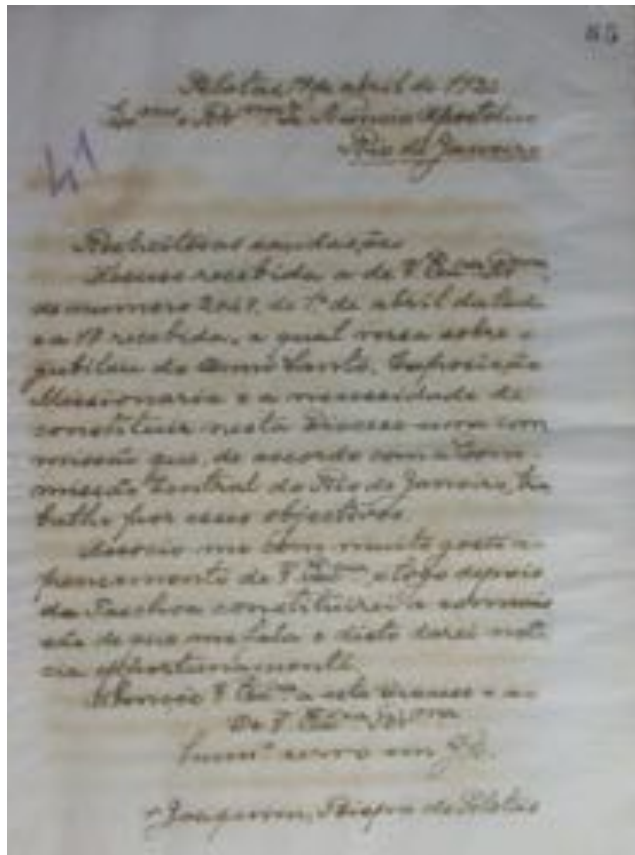 85
Pelotas, de abril de
Exmo e Revmo Sr. Nuncio Apostolico
Rio de Janeiro
41
Respeitosas saudações
Accuso recebida a de V. Excia Revma
de numero de 1º de abril datada
e a recebida, a qual versa sobre o
jubileu do Anno Santo, Exposição
Missionaria e a necessidade de
constituir nesta Diocese uma com
missão que, de accordo com a Com
missão Central do Rio de Janeiro, tra
balhe por esses objectivos.
Associo-me com muito gosto ao
pensamento de V. Excia e logo depois
da Paschoa constituirei a commis
são de que me fala e disto darei noti
cia opportunamente.
Abençoe V. Excia a esta Diocese e ao
De V. Excia Revma
servo em
+ Joaquim, Bispo de Pelotas